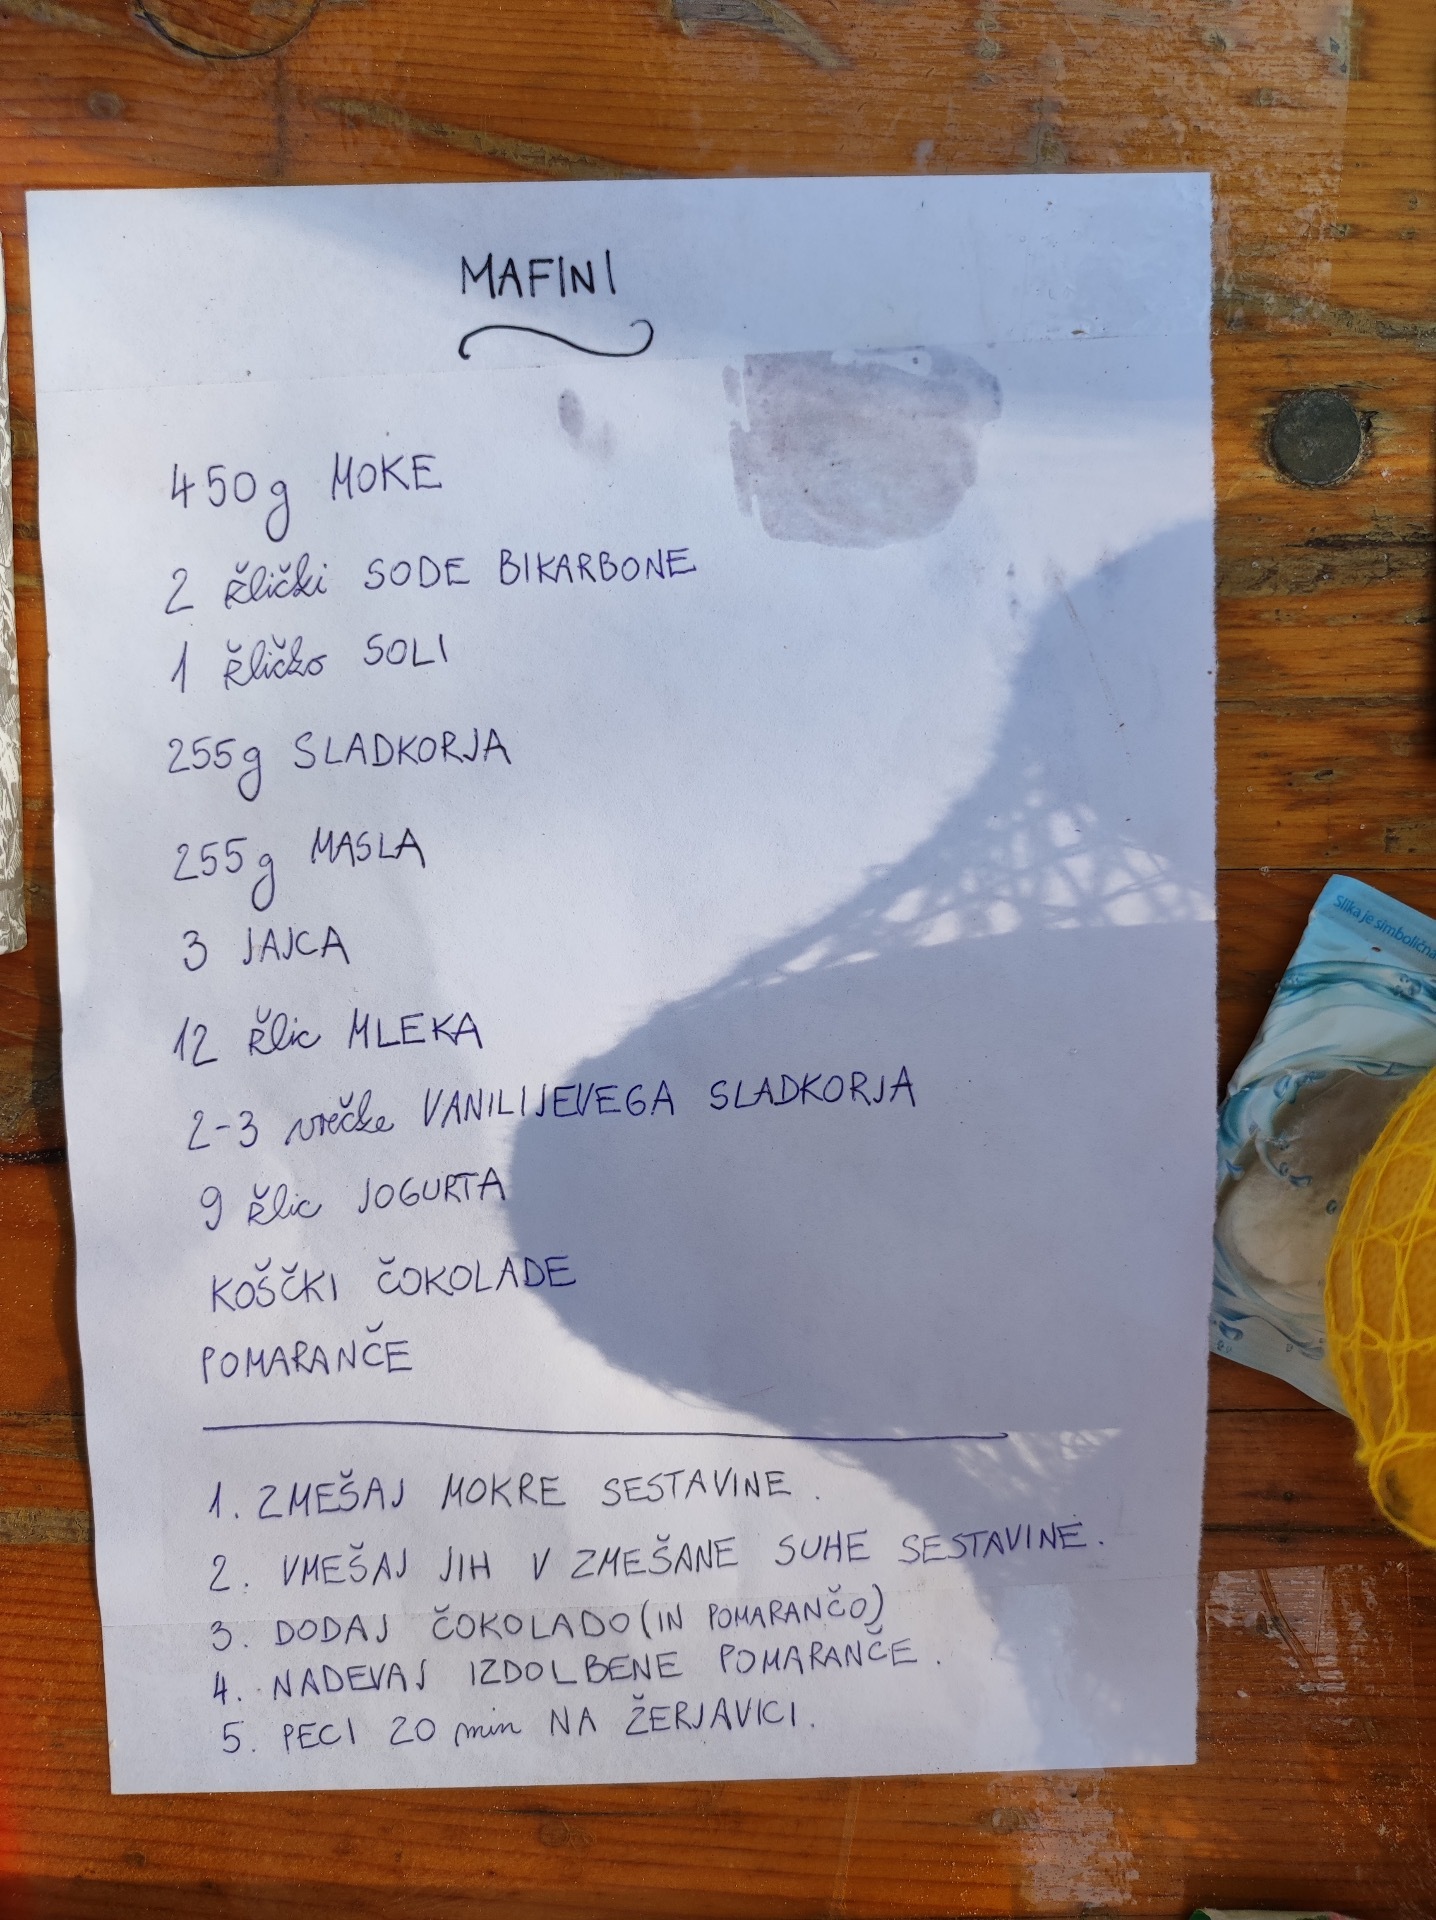 MAFINI
450g MOKE
2 žlički SODE BIKARBONE
1 žličko SOLI
255g SLADKORJA
255g MASLA
3 JAJCA
12 žlic MLEKA
2-3 vrečke VANILIJEVEGA SLADKORJA
9 žlic JOGURTA
KOŠČKI ČOKOLADE
POMARANČE
1. ZMEŠAJ MOKRE SESTAVINE.
2. VMEŠAJ JIH V ZMEŠANE SUHE SESTAVINE.
3. DODAJ ČOKOLADO (IN POMARANČO)
4. NADEVAJ IZDOLBENE POMARANČE.
5. PECI 20 min NA ŽERJAVICI.
Slika je simbolična